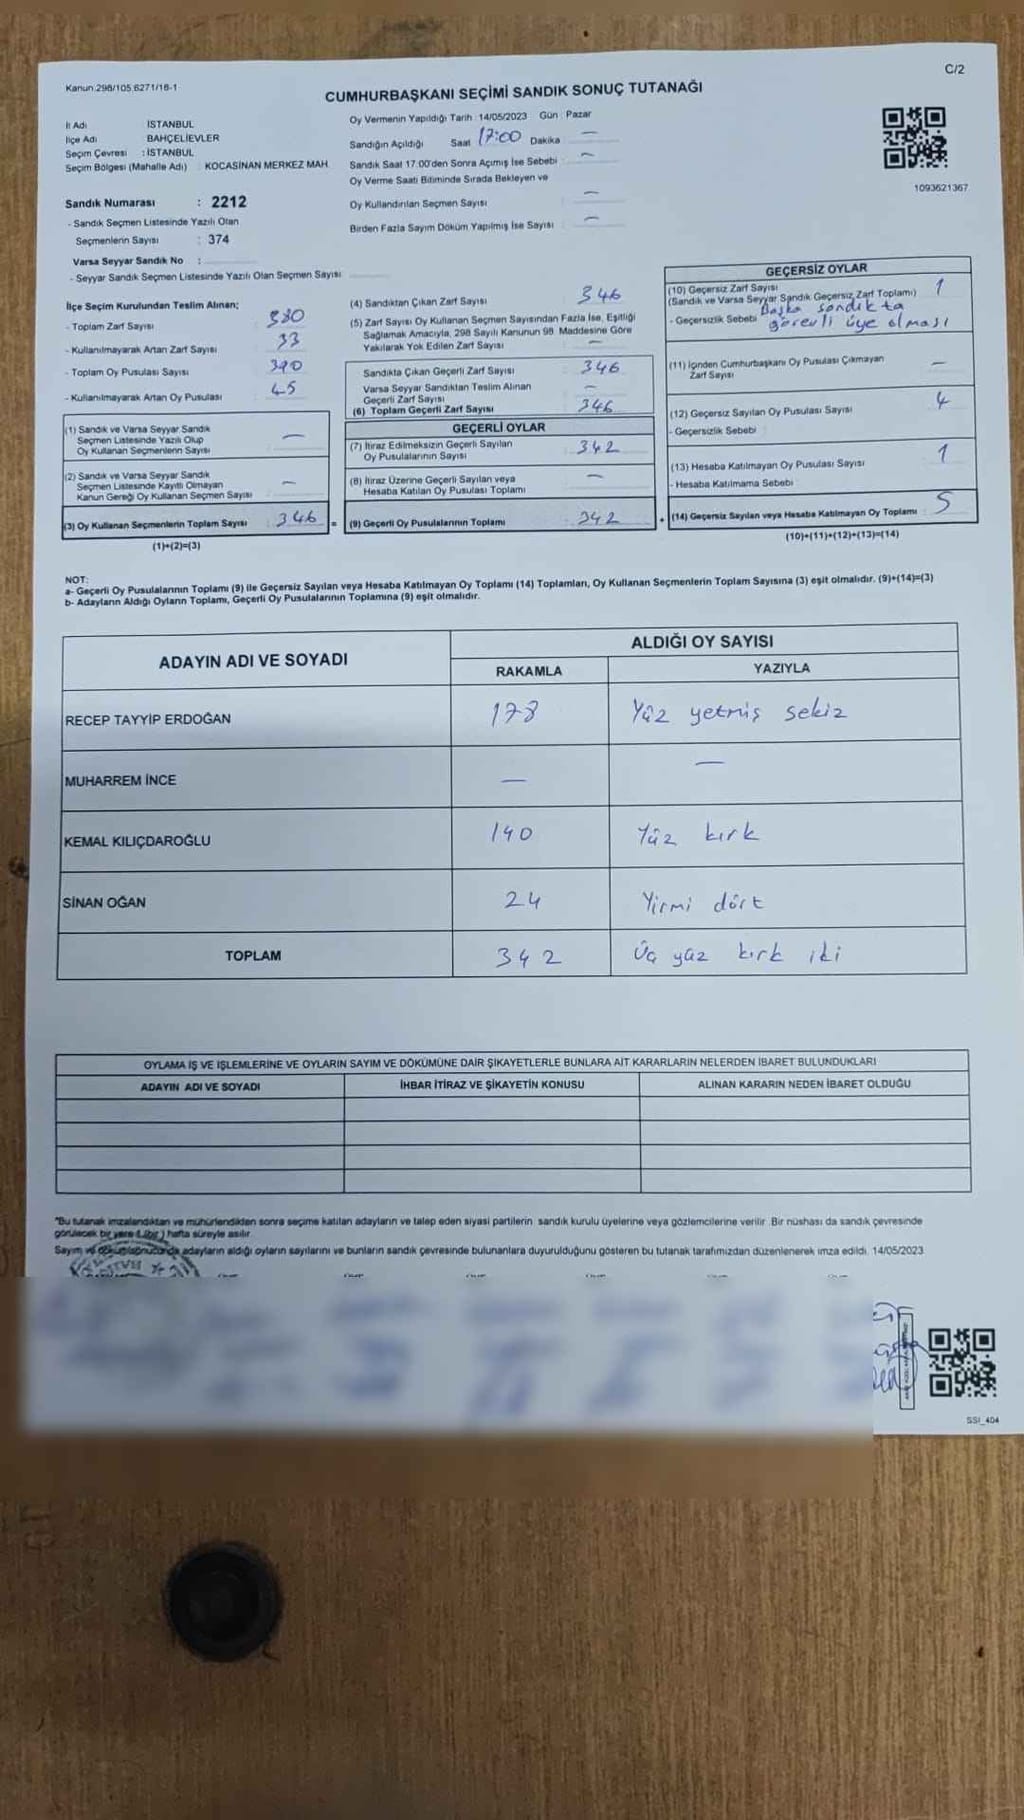 Kanun 298/105 6271/16-1
C/2
CUMHURBAŞKANI SEÇİMİ SANDIK SONUÇ TUTANAĞI
İl Adı İSTANBUL
İlçe Adı BAHÇELİEVLER
Seçim Çevresi : İSTANBUL
Seçim Bölgesi (Mahalle Adı) KOCASİNAN MERKEZ MAH.
Sandık Numarası : 2212
- Sandık Seçmen Listesinde Yazılı Olan
Seçmenlerin Sayısı : 374
Varsa Seyyar Sandık No :
- Seyyar Sandık Seçmen Listesinde Yazılı Olan Seçmen Sayısı
Oy Vermenin Yapıldığı Tarih : 14/05/2023 Gün : Pazar
Sandığın Açıldığı Saat 17:00 Dakika —
Sandık Saat 17:00'den Sonra Açımış İse Sebebi : —
Oy Verme Saati Bitiminde Sırada Bekleyen ve
Oy Kullandırılan Seçmen Sayısı —
Birden Fazla Sayım Döküm Yapılmış İse Sayısı : —
1093621367
İlçe Seçim Kurulundan Teslim Alınan;
- Toplam Zarf Sayısı 380
- Kullanılmayarak Artan Zarf Sayısı 33
- Toplam Oy Pusulası Sayısı 390
- Kullanılmayarak Artan Oy Pusulası 45
(1) Sandık ve Varsa Seyyar Sandık
Seçmen Listesinde Yazılı Olup
Oy Kullanan Seçmenlerin Sayısı —
(2) Sandık ve Varsa Seyyar Sandık
Seçmen Listesinde Kayıtlı Olmayan
Kanun Gereği Oy Kullanan Seçmen Sayısı —
(3) Oy Kullanan Seçmenlerin Toplam Sayısı : 346 =
(1)+(2)=(3)
(4) Sandıktan Çıkan Zarf Sayısı 346
(5) Zarf Sayısı Oy Kullanan Seçmen Sayısından Fazla İse, Eşitliği
Sağlamak Amacıyla, 298 Sayılı Kanunun 98. Maddesine Göre
Yakılarak Yok Edilen Zarf Sayısı —
Sandıkta Çıkan Geçerli Zarf Sayısı 346
Varsa Seyyar Sandıktan Teslim Alınan
Geçerli Zarf Sayısı —
(6) Toplam Geçerli Zarf Sayısı 346
GEÇERLİ OYLAR
(7) İtiraz Edilmeksizin Geçerli Sayılan
Oy Pusulalarının Sayısı 342
(8) İtiraz Üzerine Geçerli Sayılan veya
Hesaba Katılan Oy Pusulası Toplamı —
(9) Geçerli Oy Pusulalarının Toplamı 342 +
GEÇERSİZ OYLAR
(10) Geçersiz Zarf Sayısı 1
(Sandık ve Varsa Seyyar Sandık Geçersiz Zarf Toplamı)
- Geçersizlik Sebebi Başka sandıkta
görevli üye olması
(11) İçinden Cumhurbaşkanı Oy Pusulası Çıkmayan
Zarf Sayısı —
(12) Geçersiz Sayılan Oy Pusulası Sayısı 4
- Geçersizlik Sebebi
(13) Hesaba Katılmayan Oy Pusulası Sayısı 1
- Hesaba Katılmama Sebebi
(14) Geçersiz Sayılan veya Hesaba Katılmayan Oy Toplamı : 5
(10)+(11)+(12)+(13)=(14)
NOT:
a- Geçerli Oy Pusulalarının Toplamı (9) ile Geçersiz Sayılan veya Hesaba Katılmayan Oy Toplamı (14) Toplamları, Oy Kullanan Seçmenlerin Toplam Sayısına (3) eşit olmalıdır. (9)+(14)=(3)
b- Adayların Aldığı Oyların Toplamı, Geçerli Oy Pusulalarının Toplamına (9) eşit olmalıdır.
ADAYIN ADI VE SOYADI
ALDIĞI OY SAYISI
RAKAMLA YAZIYLA
RECEP TAYYİP ERDOĞAN 178 Yüz yetmiş sekiz
MUHARREM İNCE — —
KEMAL KILIÇDAROĞLU 140 Yüz kırk
SİNAN OĞAN 24 Yirmi dört
TOPLAM 342 Üç yüz kırk iki
OYLAMA İŞ VE İŞLEMLERİNE VE OYLARIN SAYIM VE DÖKÜMÜNE DAİR ŞİKAYETLERLE BUNLARA AİT KARARLARIN NELERDEN İBARET BULUNDUKLARI
ADAYIN ADI VE SOYADI İHBAR İTİRAZ VE ŞİKAYETİN KONUSU ALINAN KARARIN NEDEN İBARET OLDUĞU
*Bu tutanak imzalandıktan ve mühürlendikten sonra seçime katılan adayların ve talep eden siyasi partilerin sandık kurulu üyelerine veya gözlemcilerine verilir. Bir nüshası da sandık çevresinde
görülecek bir yere 1 (bir) hafta süreyle asılır.
Sayım ve döküm sonucunda adayların aldığı oyların sayılarını ve bunların sandık çevresinde bulunanlara duyurulduğunu gösteren bu tutanak tarafımızdan düzenlenerek imza edildi. 14/05/2023
SSI_404